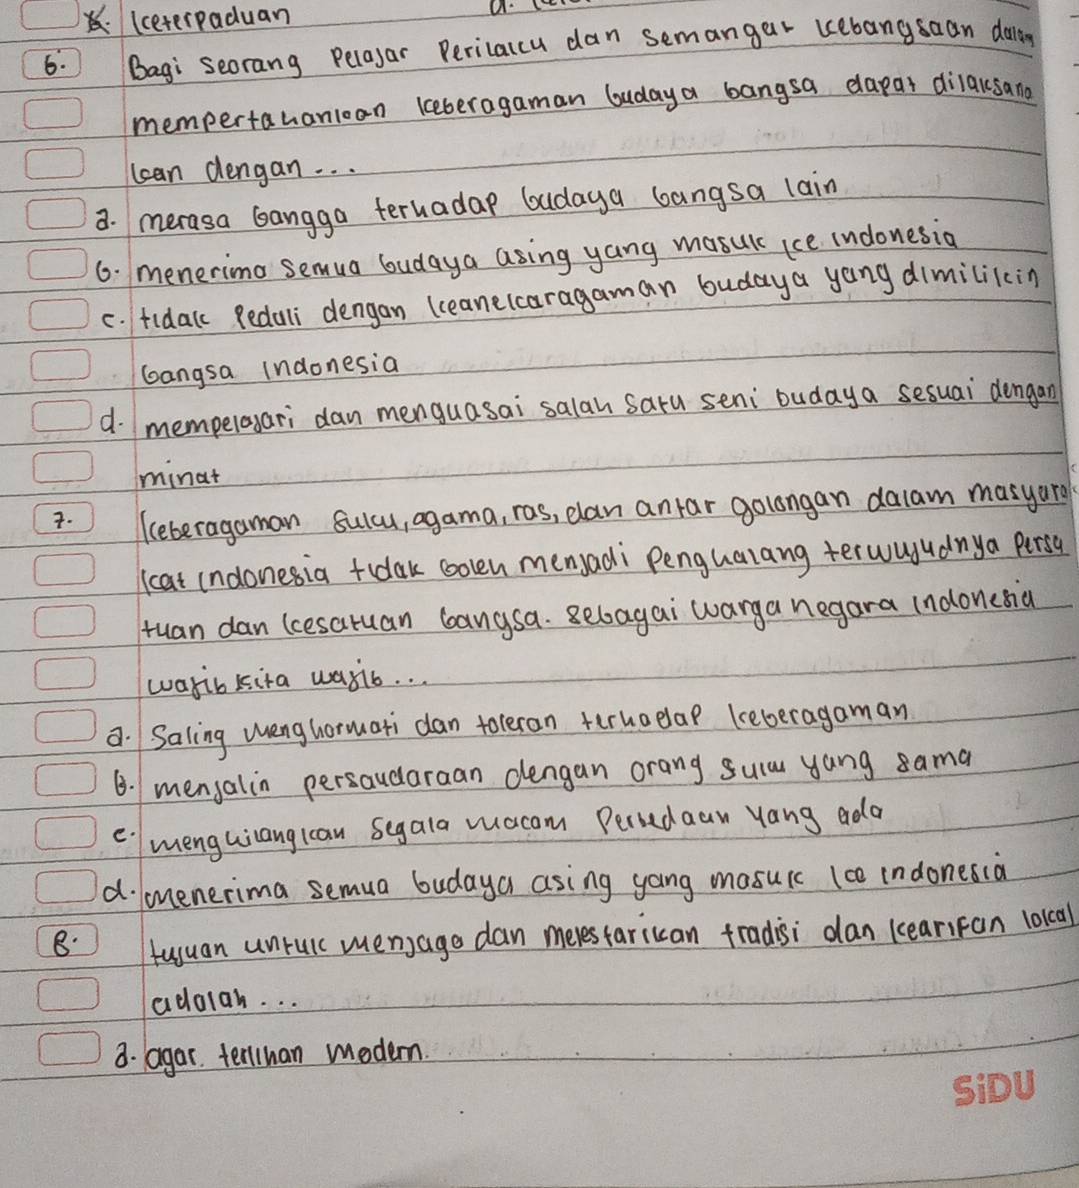 Keterpaduan a.
6. Bagi seorang pelajar perilaku dan semangat kebangsaan dalam
mempertahankan keberagaman budaya bangsa dapat dilaksana
kan dengan...
a. merasa bangga terhadap budaya bangsa lain
b. menerima semua budaya asing yang masuk ke indonesia
c. tidak peduli dengan keanekaragaman budaya yang dimilikin
bangsa indonesia
d. mempelajari dan menguasai salah satu seni budaya sesuai dengan
minat
7. keberagaman suku, agama, ras, dan antar golongan dalam masyara
kat indonesia tidak boleh menjadi penghalang terwujudnya persa
tuan dan kesatuan bangsa. sebagai warga negara indonesia
wajib kita wajib...
a. saling menghormati dan toleran terhadap keberagaman
b. menjalin persaudaraan dengan orang suku yang sama
c. menghilangkan segala macam perbedaan yang ada
d. menerima semua budaya asing yang masuk ke indonesia
8. tujuan untuk menjaga dan melestarikan tradisi dan kearifan lokal
adalah...
a. agar. terlihan modern
SiDU